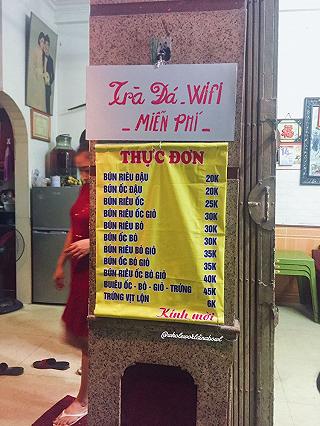 Trà Đá - Wifi
- MIỄN PHÍ -
THỰC ĐƠN
BÚN RIÊU ĐẬU 20K
BÚN ỐC ĐẬU 20K
BÚN RIÊU ỐC 25K
BÚN RIÊU ỐC GIÒ 30K
BÚN RIÊU BÒ 30K
BÚN ỐC BÒ 30K
BÚN RIÊU BÒ GIÒ 35K
BÚN ỐC BÒ GIÒ 35K
BÚN RIÊU ỐC BÒ GIÒ 40K
BUIÊU ỐC - BÒ - GIÒ - TRỨNG 45K
TRỨNG VỊT LỘN 6K
Kính mời
@wholeworldinabowl